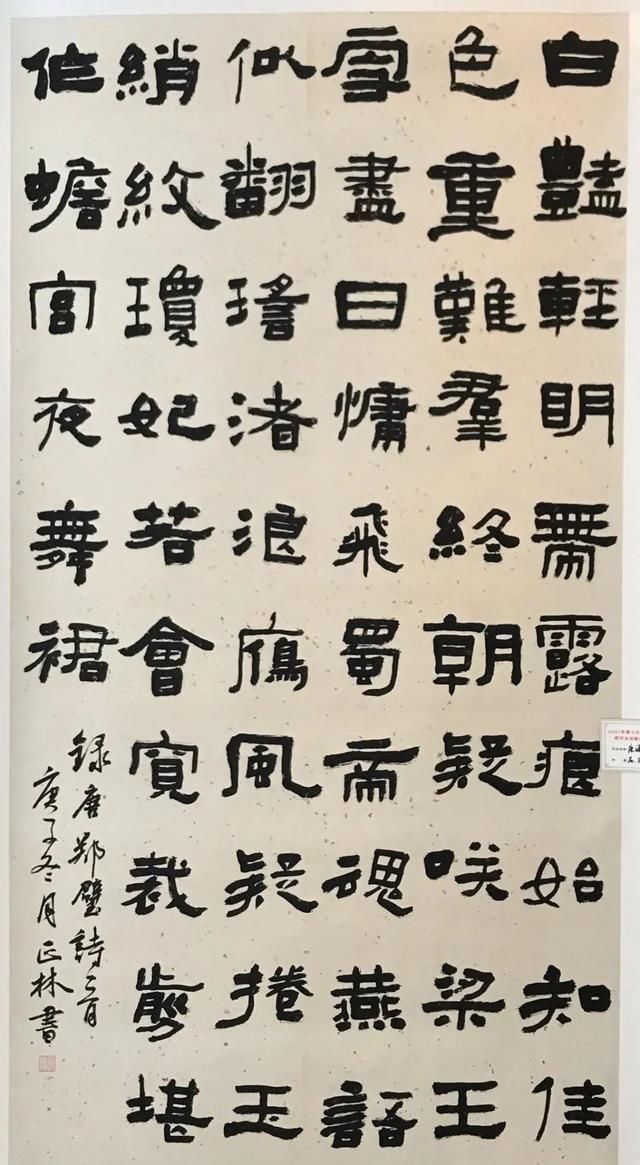 白豔輕明帶露痕始知佳
色重難羣終朝疑咲梁王
雪盡日慵飛蜀帝魂燕語
似翻瑤渚浪鴈風疑捲玉
綃紋瓊妃若會寬裁剪堪
作蟾宮夜舞裙
録唐鄭璧詩一首
庚子冬月正林書